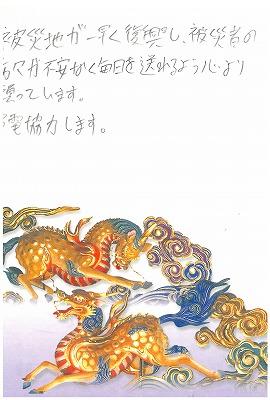 被災地が一早く復興し、被災者の
方々が不安なく毎日を送れるよう心より
願っています。
節電協力します。